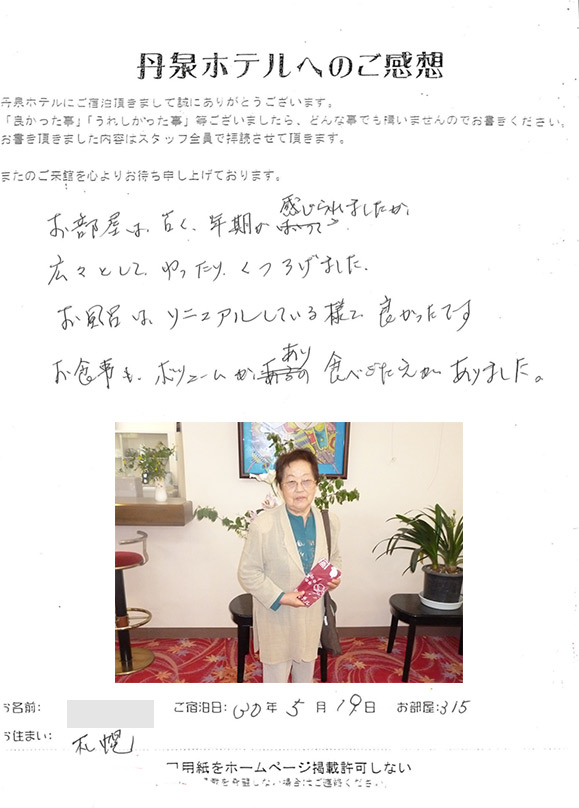 丹泉ホテルへのご感想
丹泉ホテルにご宿泊頂きまして誠にありがとうございます。
「良かった事」「うれしかった事」等ございましたら、どんな事でも構いませんのでお書きください。
お書き頂きました内容はスタッフ全員で拝読させて頂きます。
またのご来館を心よりお待ち申し上げております。
お部屋は、古く、年期が感じられましたが、
広々として、ゆったり、くつろげました。
お風呂は、リニュアルしている様で良かったです
お食事も、ボリュームがあり食べごたえがありました。
お名前:
ご宿泊日: 30年 5月 19日 お部屋:315
お住まい: 札幌
用紙をホームページ掲載許可しない
場合はご連絡ください